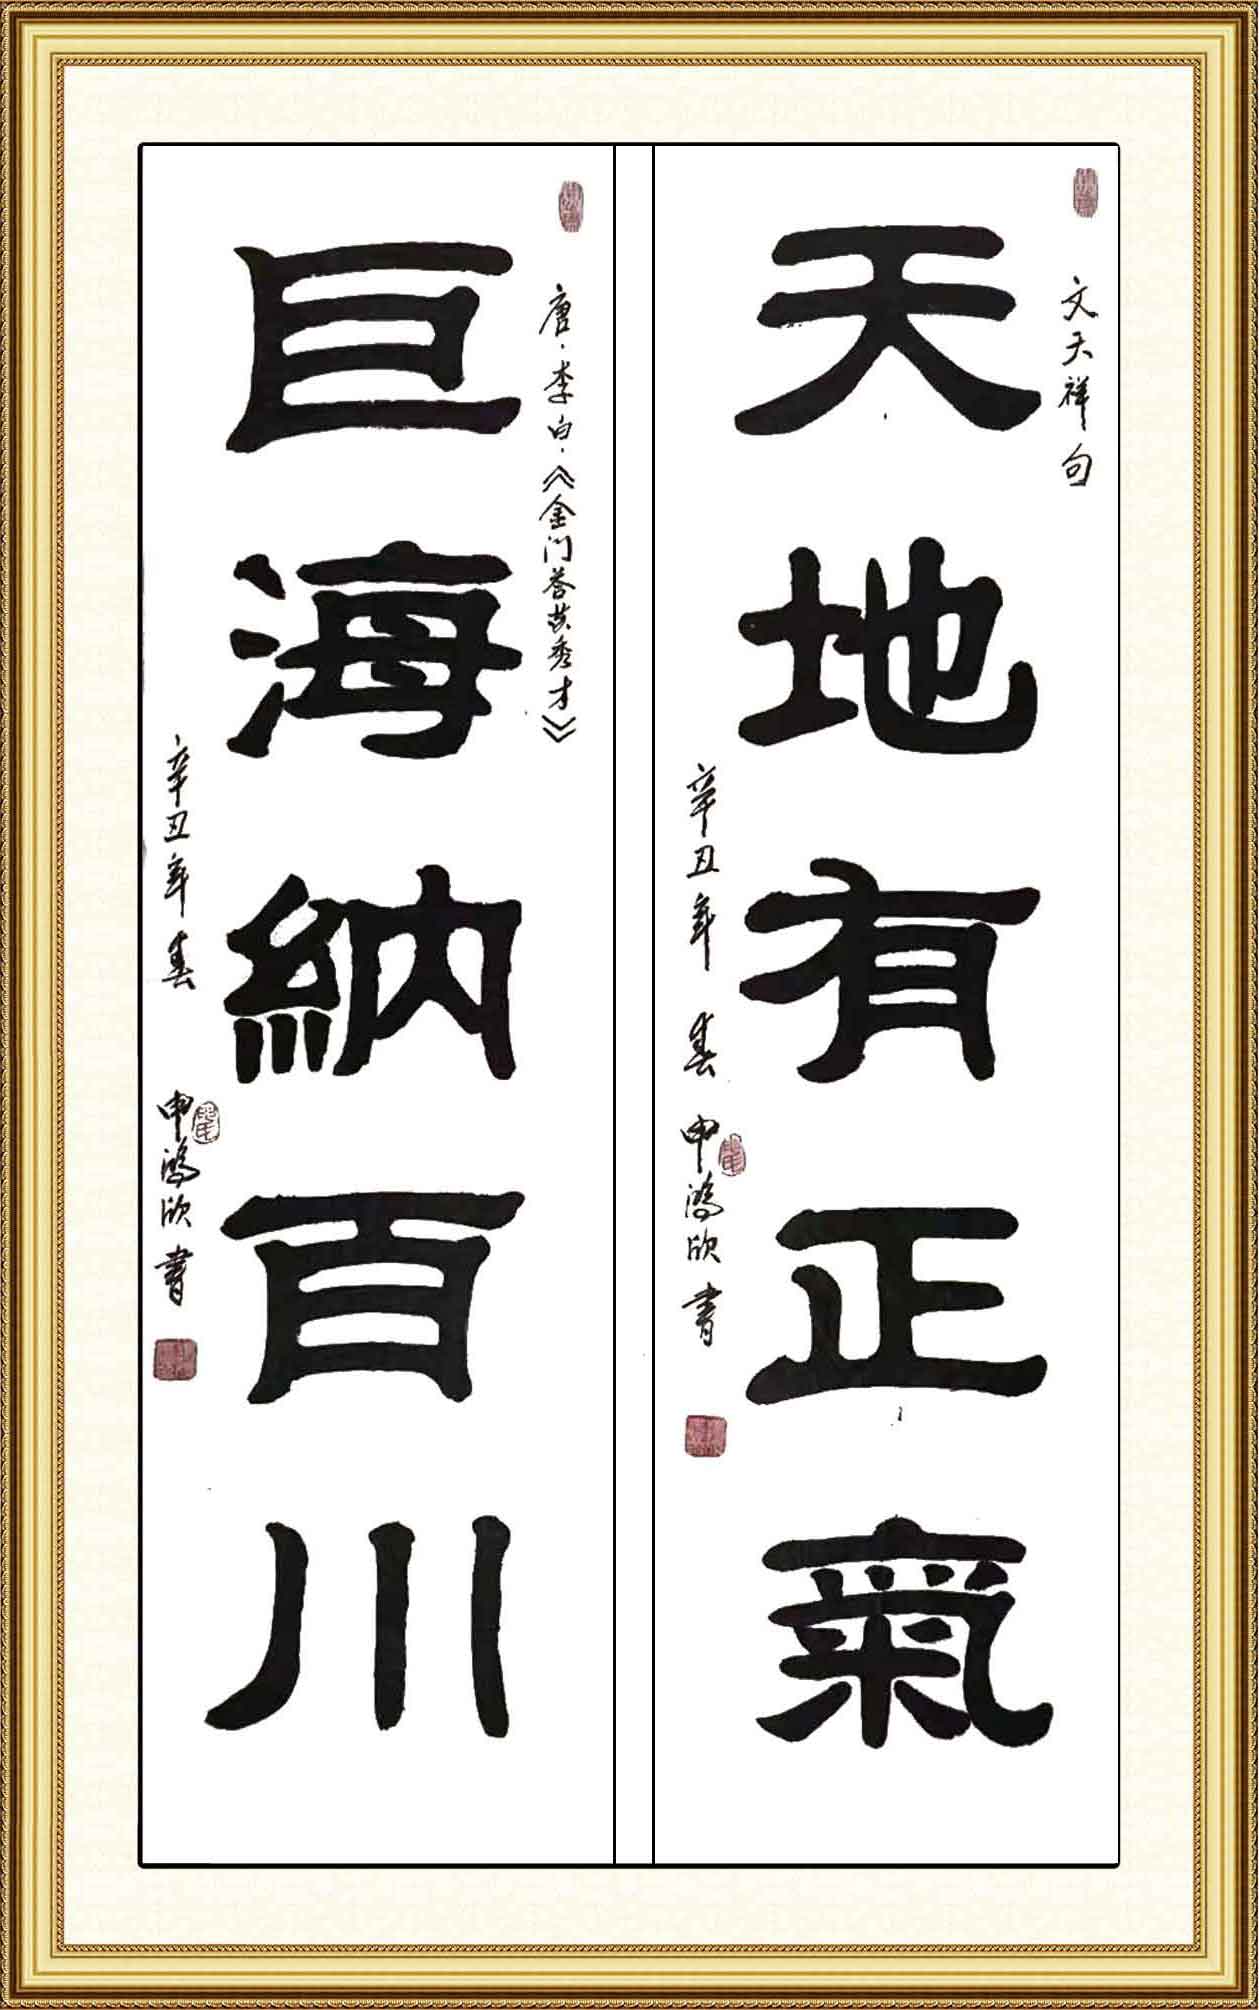 文天祥句
天地有正氣
辛丑年 春 申鸿欣書
唐·李白·《金门荅苏秀才》
巨海納百川
辛丑年春 申鸿欣書